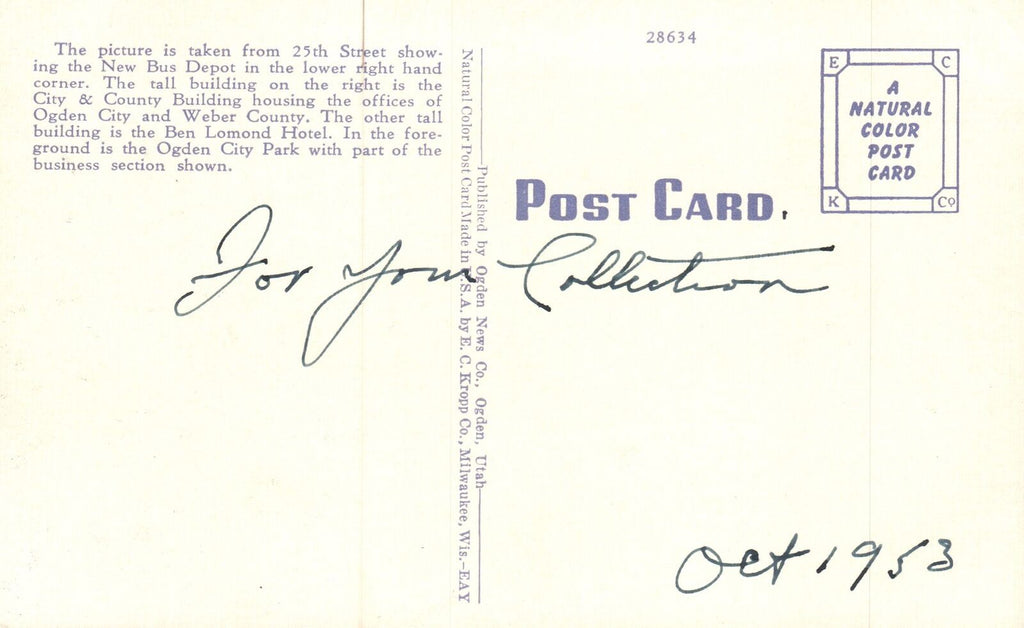 The picture is taken from 25th Street show-
ing the New Bus Depot in the lower right hand
corner. The tall building on the right is the
City & County Building housing the offices of
Ogden City and Weber County. The other tall
building is the Ben Lomond Hotel. In the fore-
ground is the Ogden City Park with part of the
business section shown.
Published by Ogden News Co., Ogden, Utah
Natural Color Post Card Made in U.S.A. by E. C. Kropp Co., Milwaukee, Wis.-EAY
28634
E C
A
NATURAL
COLOR
POST
CARD
K Co
POST CARD
For Your Collection
Oct 1953